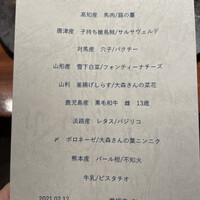 高知産 馬肉/蕗の薹
唐津産 子持ち槍烏賊/サルサヴェルデ
対馬産 穴子/パクチー
山形産 雪下白菜/フォンティーナチーズ
山利 釜揚げしらす/大森さんの菜花
鹿児島産 黒毛和牛 雌 13歳
淡路産 レタス/バジリコ
ボロネーゼ/大森さんの葉ニンニク
熊本産 パール柑/不知火
牛乳/ピスタチオ
2021.03.12